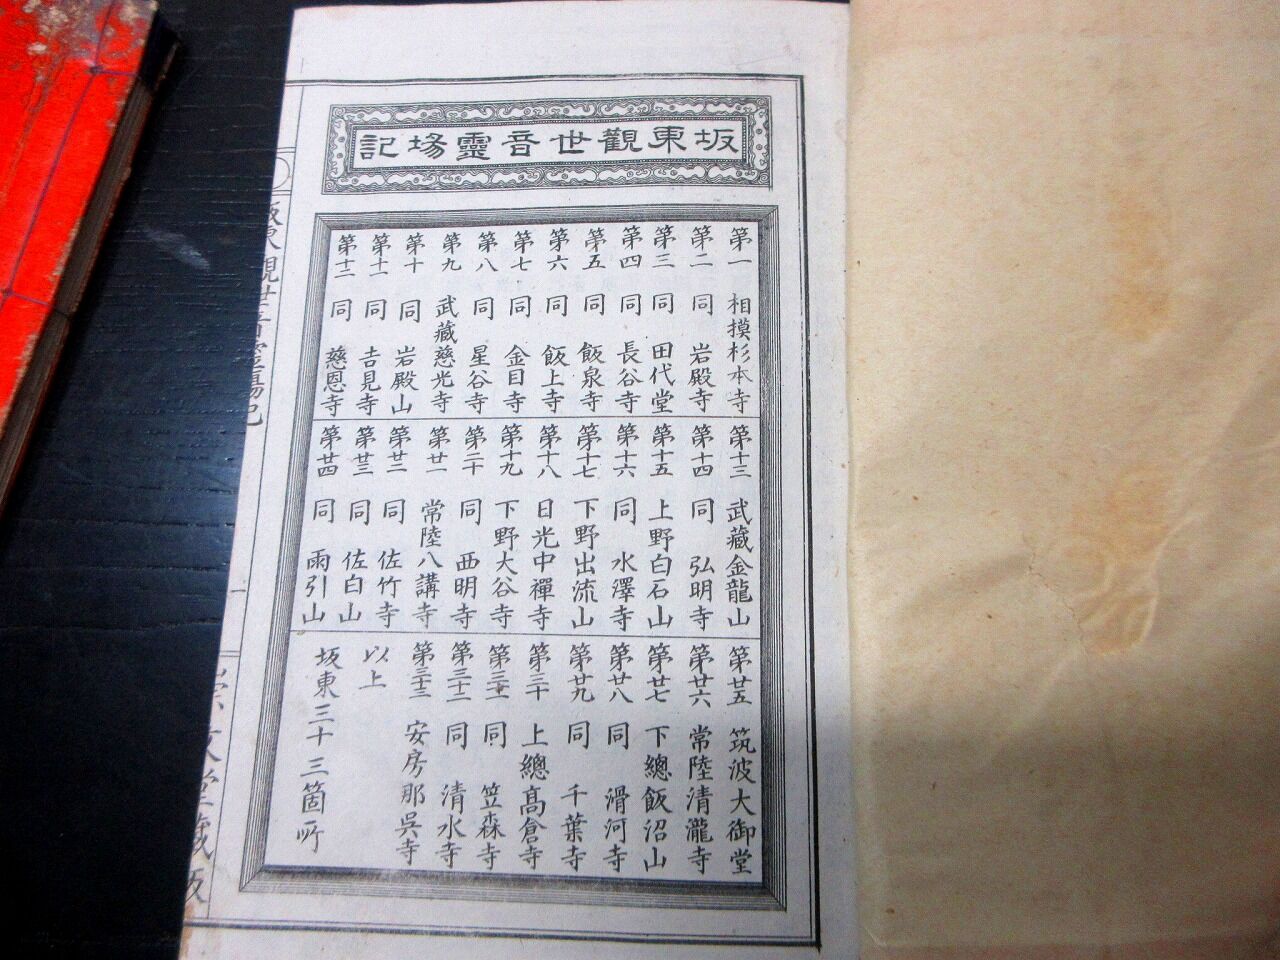 坂東觀世音靈場記
第一 相摸杉本寺
第二 同 岩殿寺
第三 同 田代堂
第四 同 長谷寺
第五 同 飯泉寺
第六 同 飯上寺
第七 同 金目寺
第八 同 星谷寺
第九 武藏慈光寺
第十 同 岩殿山
第十一 同 吉見寺
第十二 同 慈恩寺
第十三 武藏金龍山
第十四 同 弘明寺
第十五 上野白石山
第十六 同 水澤寺
第十七 下野出流山
第十八 日光中禪寺
第十九 下野大谷寺
第二十 同 西明寺
第廿一 常陸八講寺
第廿二 同 佐竹寺
第廿三 同 佐白山
第廿四 同 雨引山
第廿五 筑波大御堂
第廿六 常陸清瀧寺
第廿七 下總飯沼山
第廿八 同 滑河寺
第廿九 同 千葉寺
第三十 上總高倉寺
第三十一 同 笠森寺
第三十二 同 清水寺
第三十三 安房那吳寺
以上
坂東三十三箇所
坂東觀世音靈場記
一
崇文堂藏版